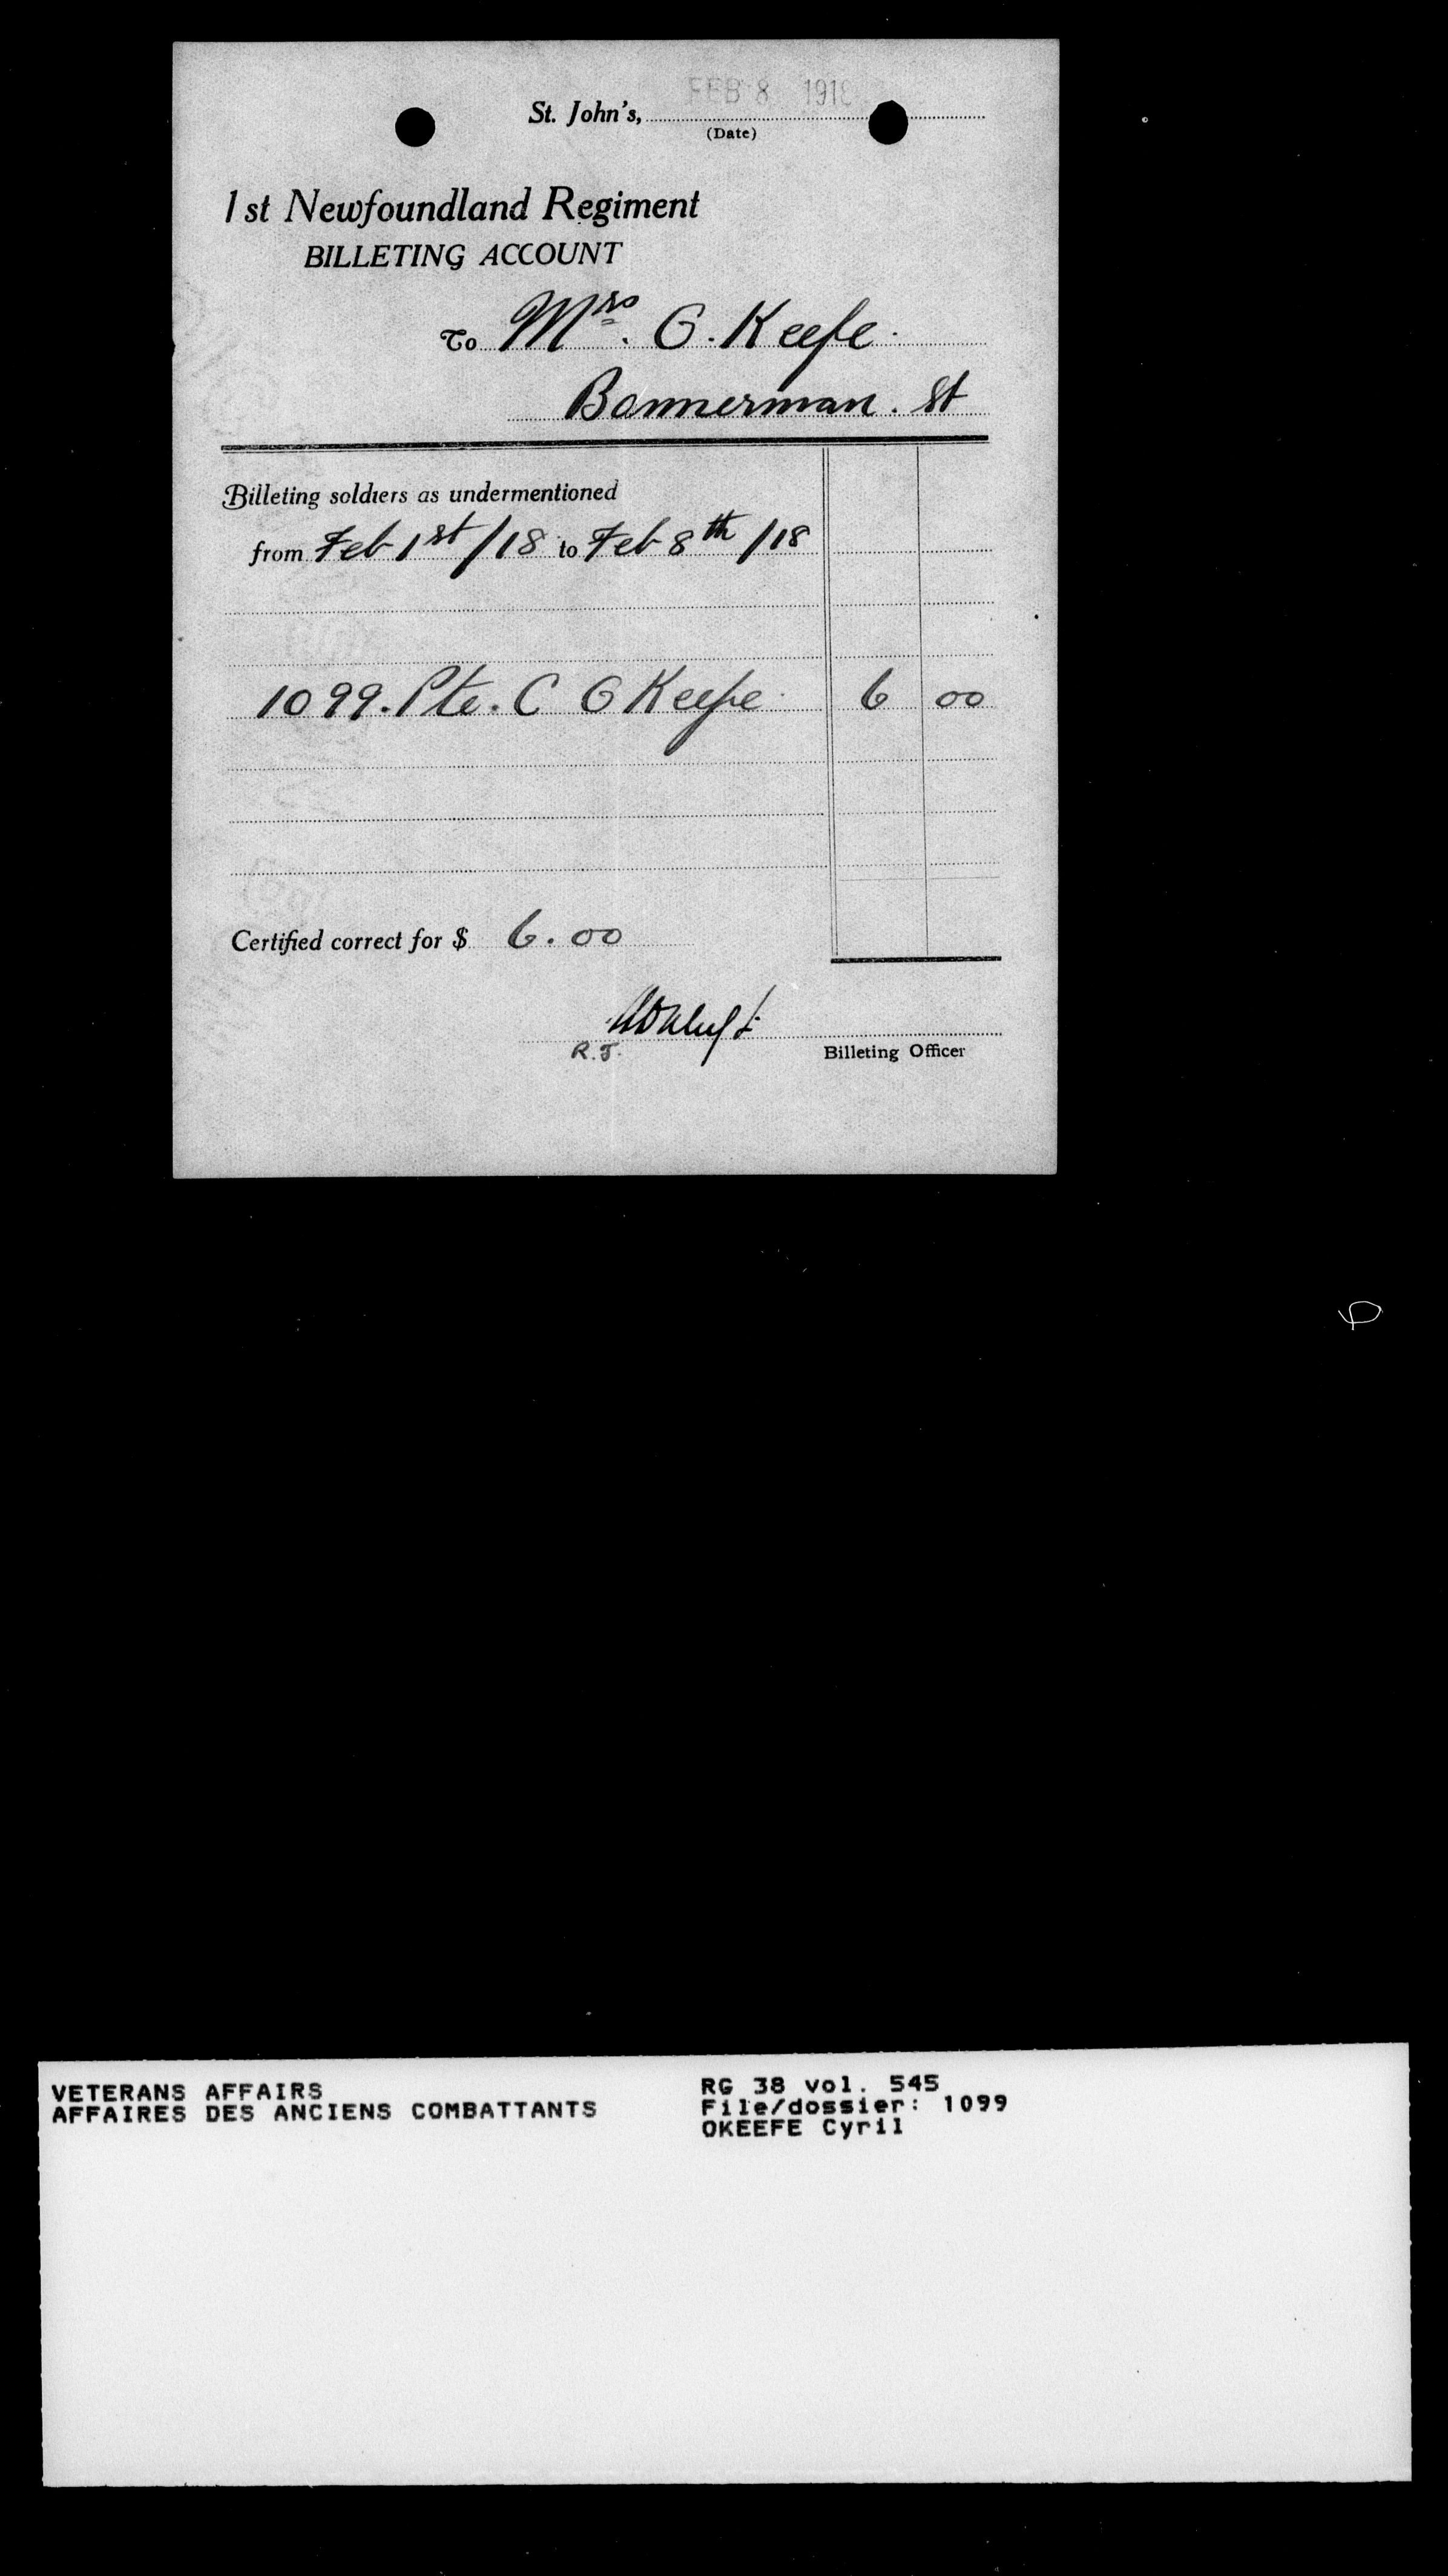 St. John's, FEB 8 1918
(Date)
1st Newfoundland Regiment
BILLETING ACCOUNT
To Mrs. O. Keefe.
Bannerman. St
Billeting soldiers as undermentioned
from Feb 1st/18 to Feb 8th/18
1099. Pte. C O Keefe 6 00
Certified correct for $ 6.00
R.J. Billeting Officer
VETERANS AFFAIRS
AFFAIRES DES ANCIENS COMBATTANTS
RG 38 vol. 545
File/dossier: 1099
OKEEFE Cyril